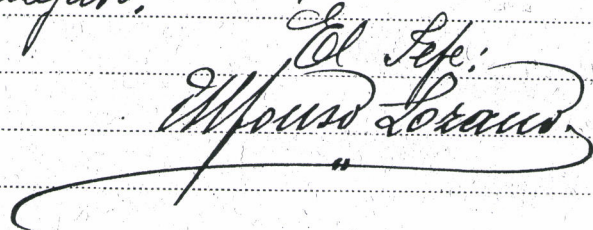 El Jefe:
Alfonso Lozano.